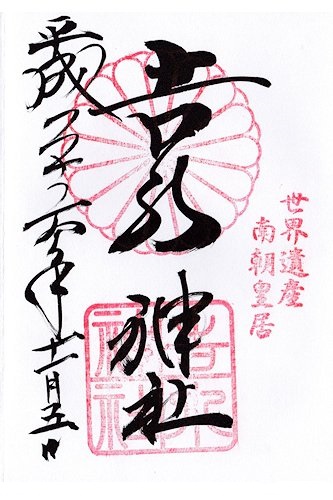 世界遺産
南朝皇居
吉水神社
平成 年十一月五日
吉水神社